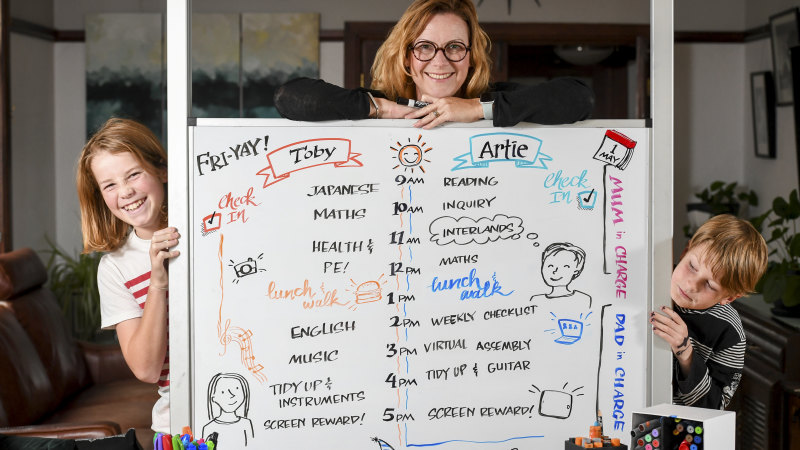 FRI-YAY!
Toby
Check
In
JAPANESE
MATHS
HEALTH &
PE!
lunch &
walk
ENGLISH
MUSIC
TIDY UP &
INSTRUMENTS
SCREEN REWARD!
9AM
10AM
11AM
12PM
1PM
2PM
3PM
4PM
5PM
Artie
Check
In
READING
INQUIRY
INTERLANDS
MATHS
lunch &
walk
WEEKLY CHECKLIST
VIRTUAL ASSEMBLY
TIDY UP & GUITAR
SCREEN REWARD!
1
MAY
MUM in CHARGE
DAD in CHARGE